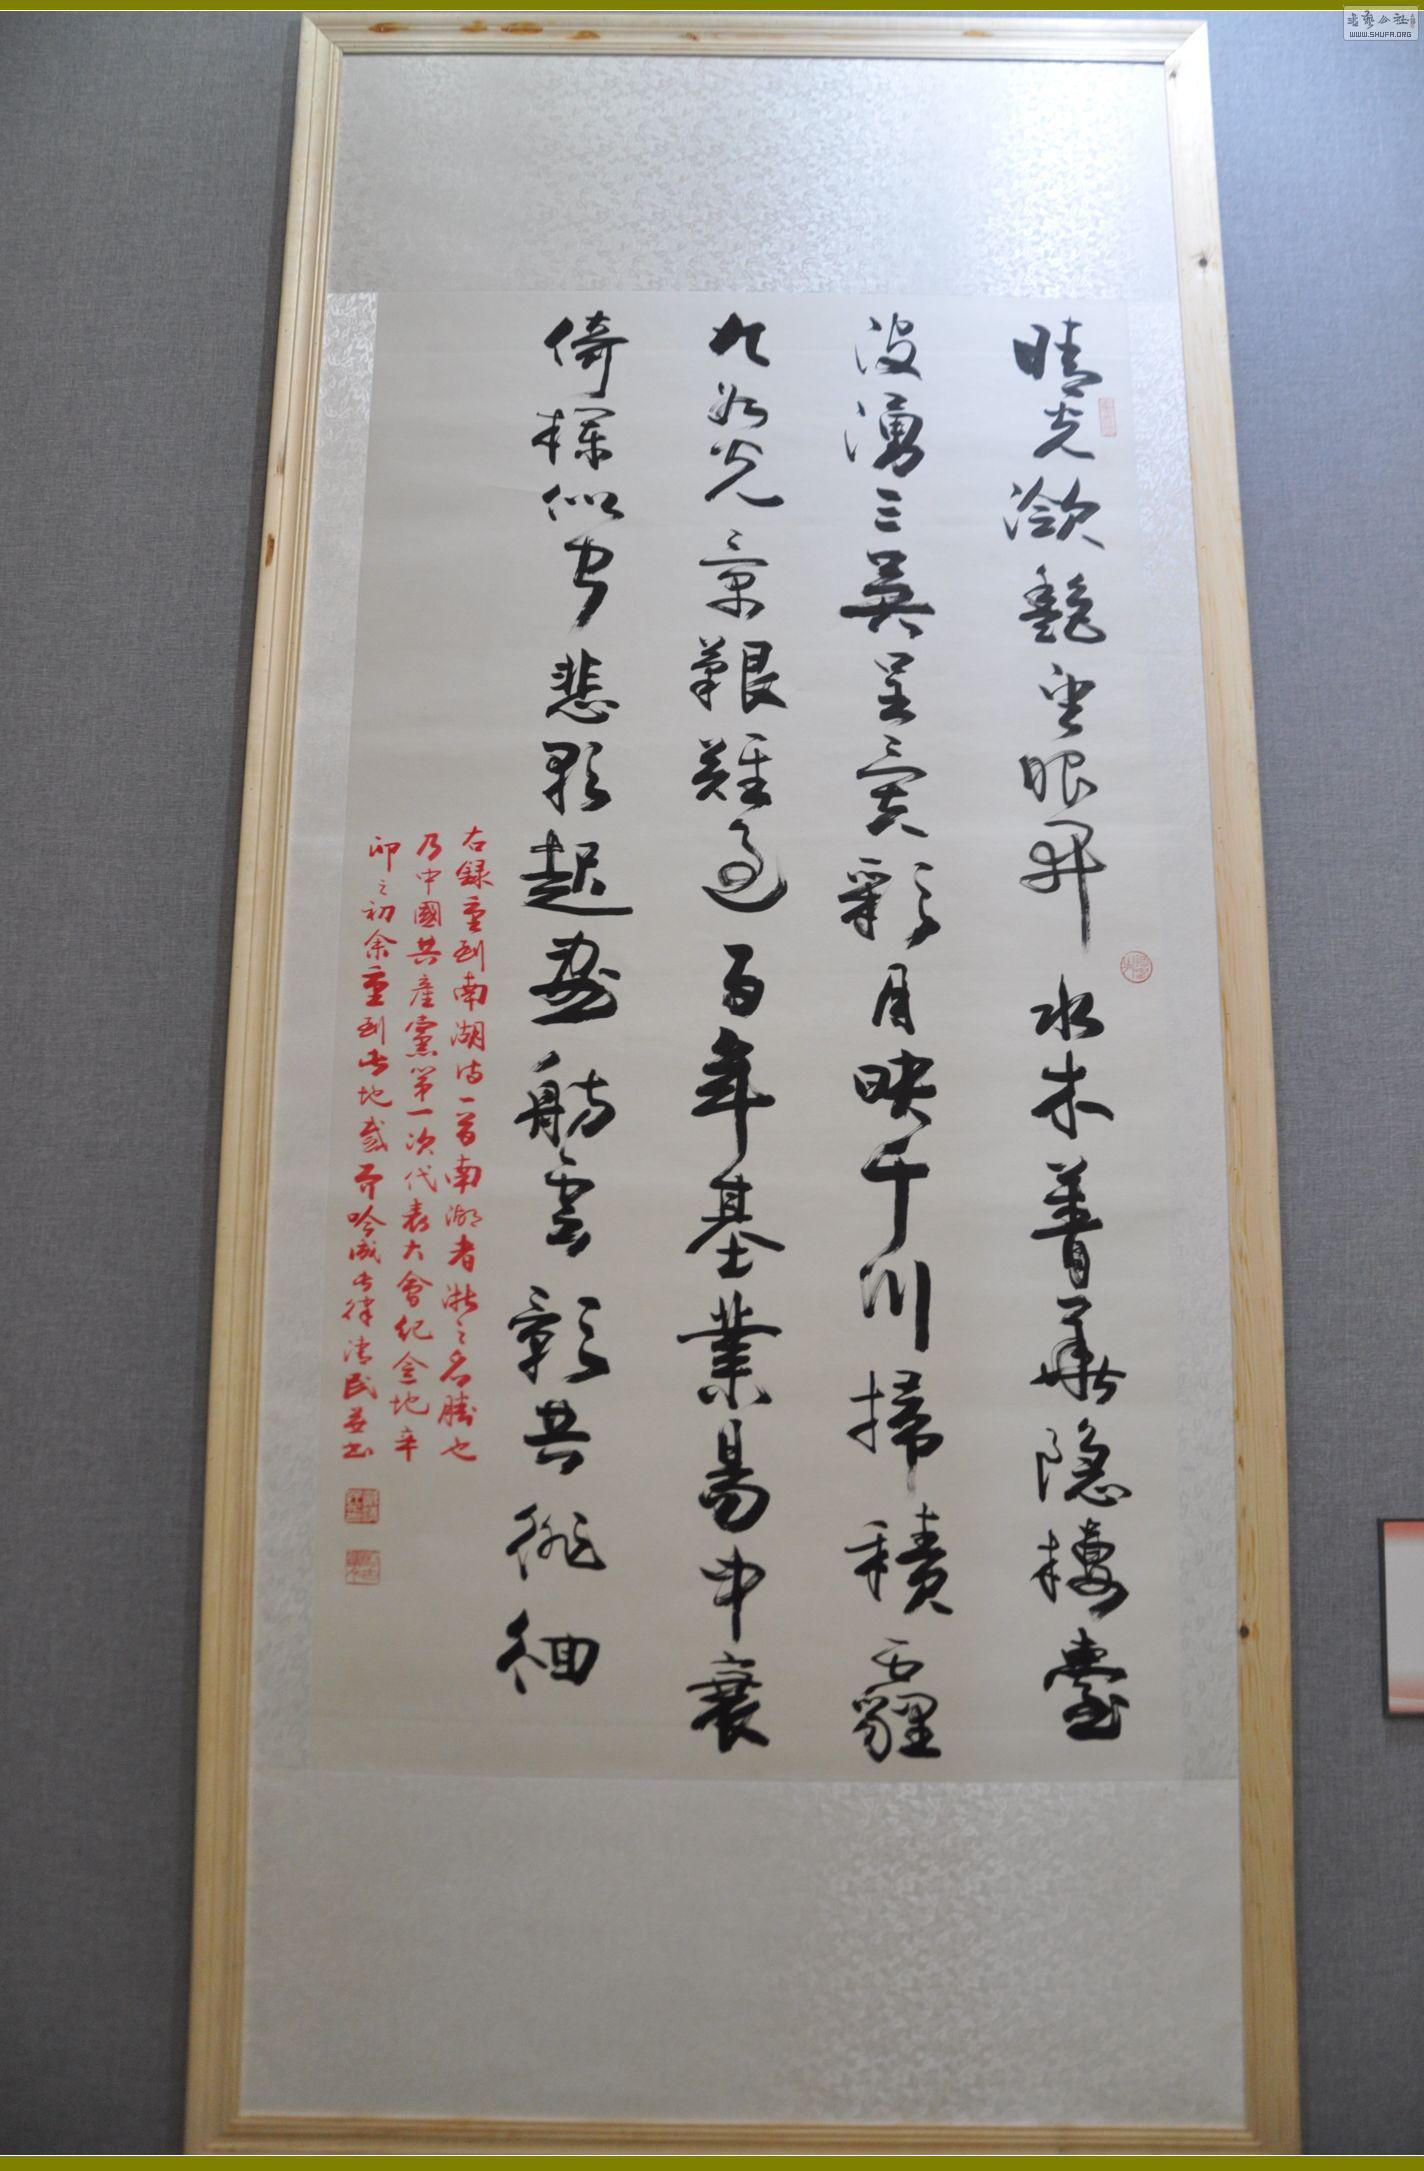 晴光潋艷望眼開水木菁華隐樓臺
波湧三吴呈霓彩月映千川掃積霾
九派光景艱難過百年基業易中衰
倚欄似有悲歌起畫舫雲影共徘徊
右録重到南湖诗一首南湖者浙之名勝也
乃中國共產黨第一次代表大會纪念地辛
卯之初余重到此地感而吟成此律清民並书
书艺公社
WWW.SHUFA.ORG